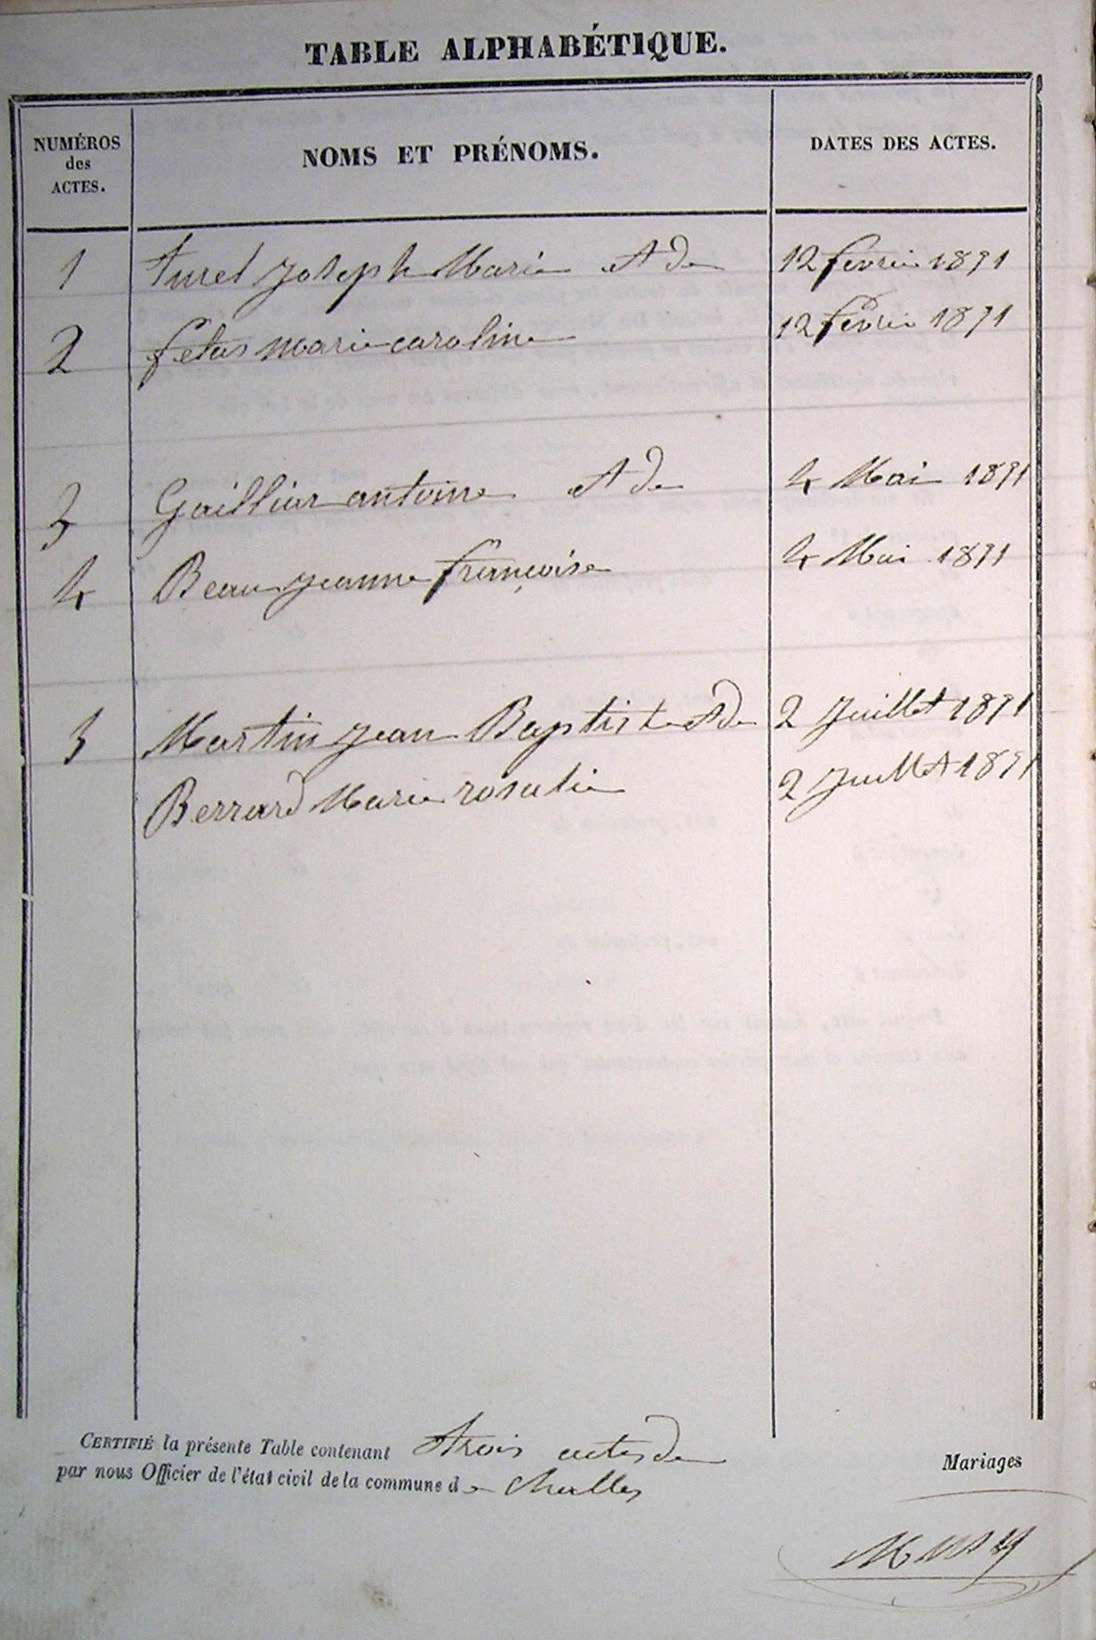 TABLE ALPHABÉTIQUE.
NUMÉROS
des
ACTES.
NOMS ET PRÉNOMS.
DATES DES ACTES.
1 Joseph Marie 12 fevrier 1891
2 fetas marie caroline 12 fevrier 1891
3 Gaillian antoine 4 Mai 1891
4 Beau jeanne françoise 4 Mai 1891
5 Martin jean Baptiste 2 juillet 1891
Berrard Marie rosalie 2 juillet 1891
CERTIFIÉ la présente Table contenant trois actes de Mariages
par nous Officier de l'état civil de la commune de